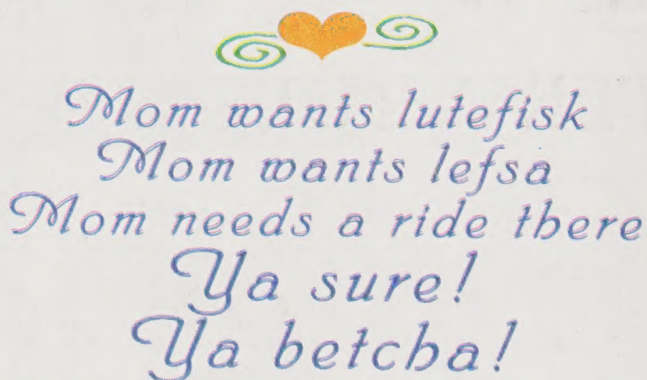 Mom wants lutefisk
Mom wants lefsa
Mom needs a ride there
Ya sure!
Ya betcha!